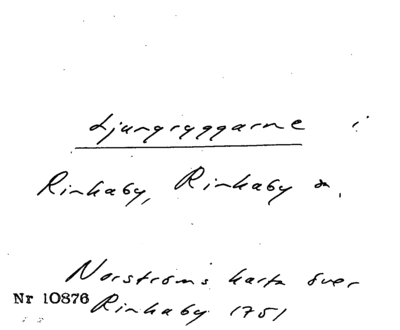 Ljungryggarne i
Rinkaby, Rinkaby sn.
Norströms karta över
Nr 10876
Rinkaby 1751